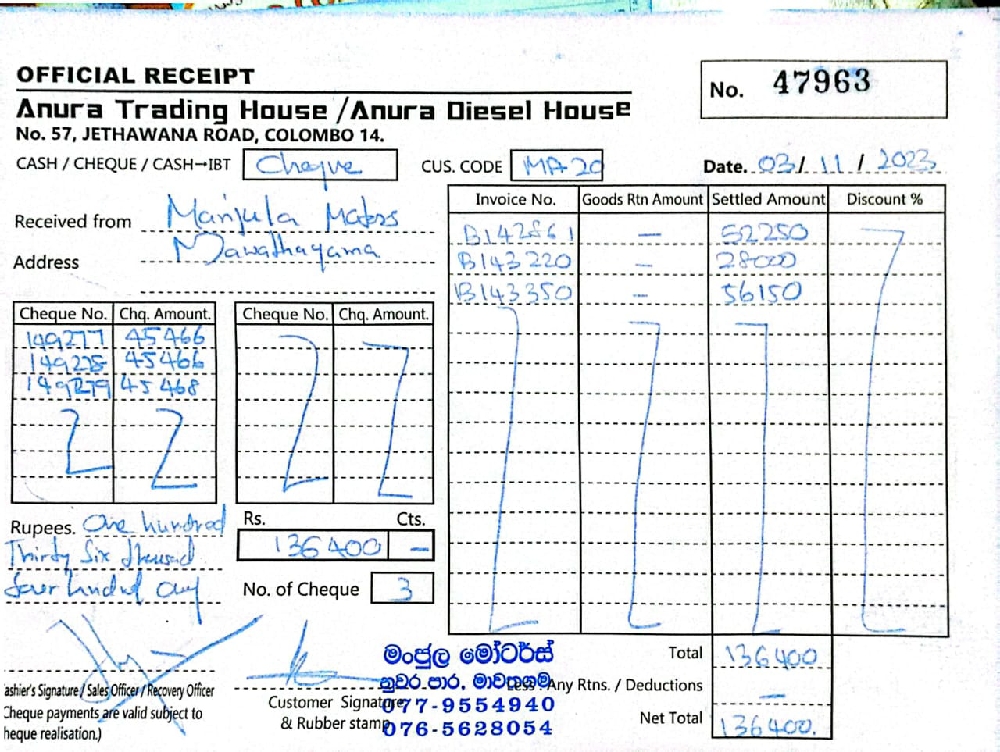 OFFICIAL RECEIPT
No. 47963
Anura Trading House / Anura Diesel House
No. 57, JETHAWANA ROAD, COLOMBO 14.
CASH / CHEQUE / CASH→IBT Cheque CUS. CODE MA 20 Date. 03/ 11 / 2023
Received from Manjula Motors
Address Mawathagama
Invoice No. Goods Rtn Amount Settled Amount Discount %
B142861 — 52250
B143220 — 28000
B143350 — 56150
Cheque No. Chq. Amount. Cheque No. Chq. Amount.
149277 45466
149278 45466
149279 45468
Rupees. One hundred
Thirty Six thousand
four hundred only
Rs. Cts.
136400 —
No. of Cheque 3
Total 136400
Less : Any Rtns. / Deductions —
Net Total 136400.
ashier's Signature / Sales Officer / Recovery Officer
Cheque payments are valid subject to
heque realisation.)
Customer Signature
& Rubber stamp
මංජුල මෝටර්ස්
නුවර පාර, මාවතගම
077-9554940
076-5628054